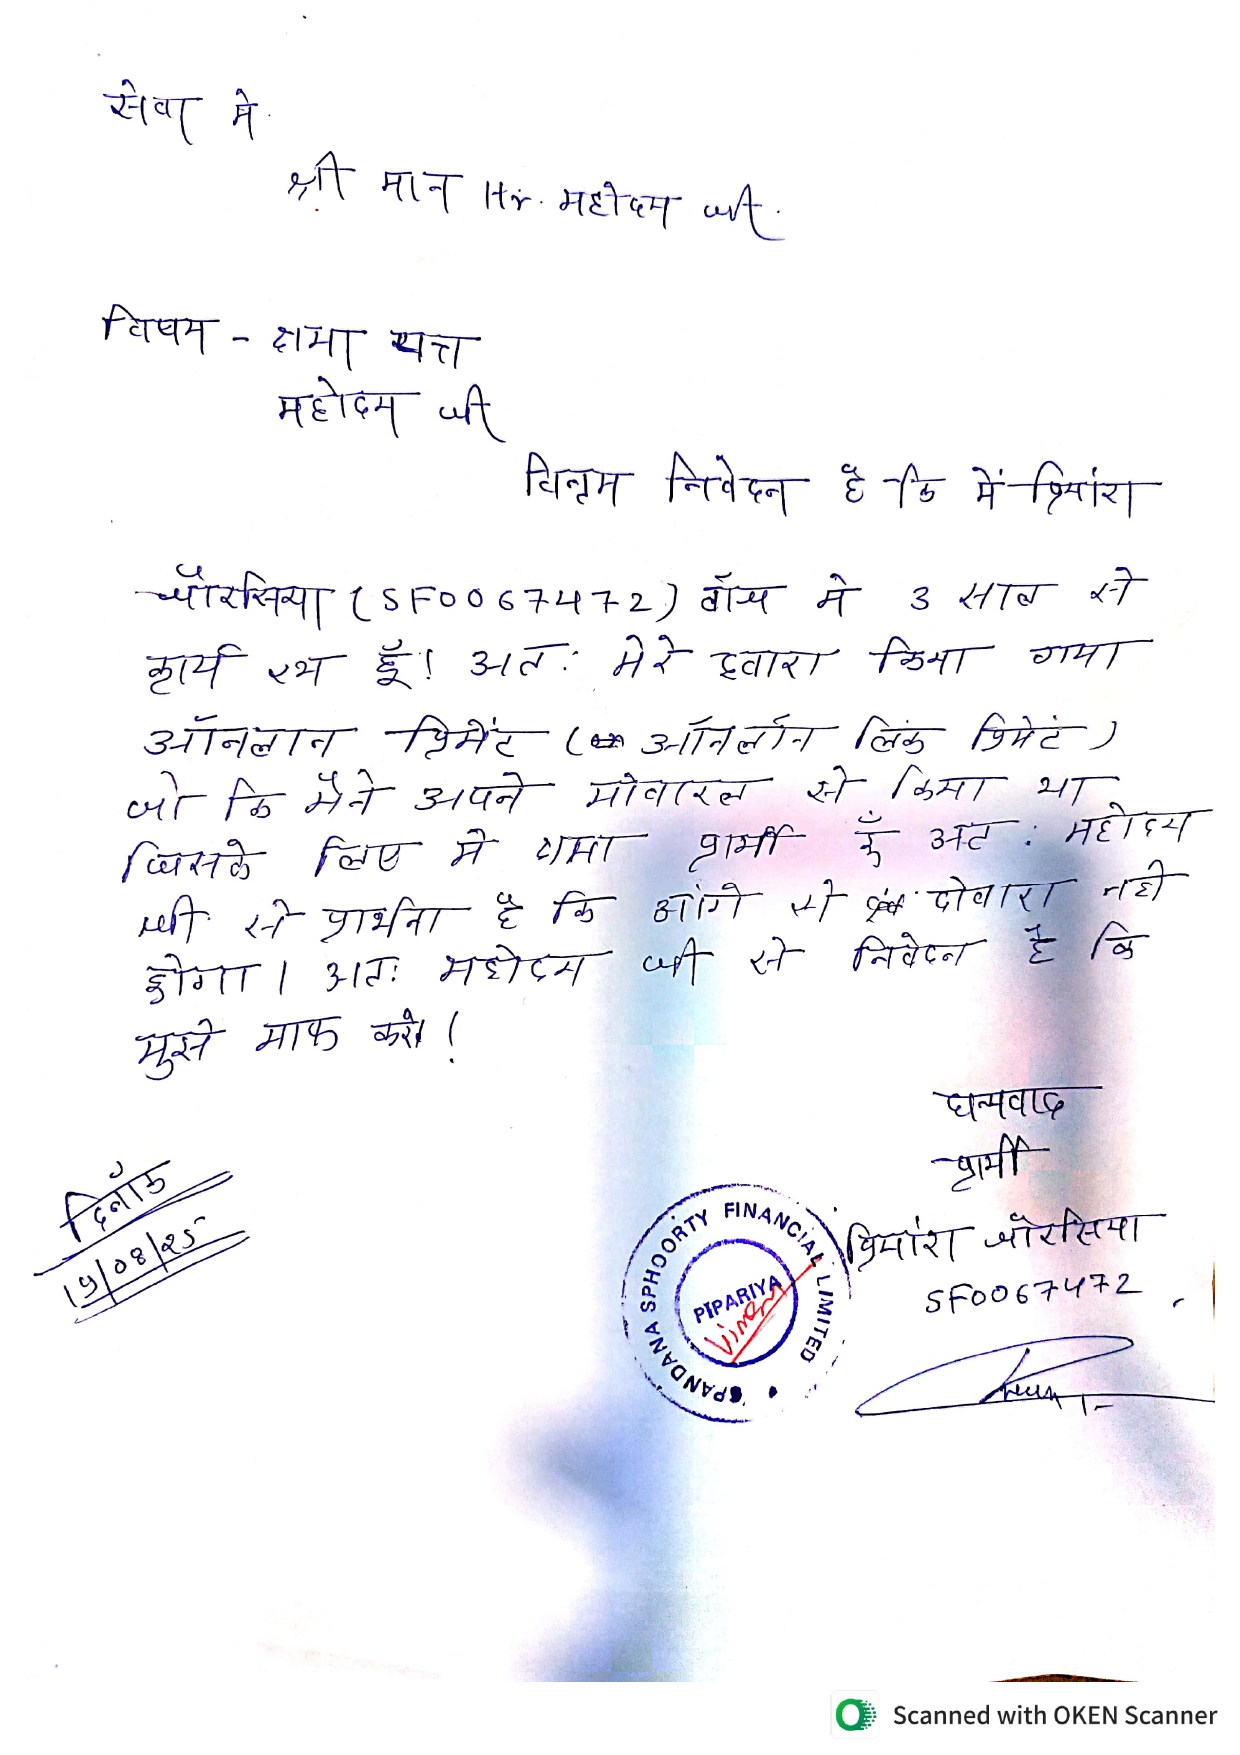 सेवा मे
श्री मान Hr. महोदय जी.
विषय - क्षमा पत्र
महोदय जी
विनम्र निवेदन है कि में प्रियांश
चौरसिया (SF0067472) ब्रॉच मे 3 साल से
कार्य रथ हूँ! अत: मेरे द्वारा किया गया
ऑनलान प्रिमेंट ( ऑनलॉन लिंक प्रिमेटं )
जो कि मैने अपने मोवाइल से किया था
जिसके लिए मे क्षमा प्रार्थी हूँ अत: महोदय
जी से प्रार्थना है कि आंगे से दोवारा नही
होगा। अत: महोदय जी से निवेदन है कि
मुझे माफ करे!
धन्यवाद
प्रार्थी
प्रियांश चौरसिया
SF0067472
दिनाँक
19/08/25
SPANDANA SPHOORTY FINANCIAL LIMITED
PIPARIYA
Scanned with OKEN Scanner